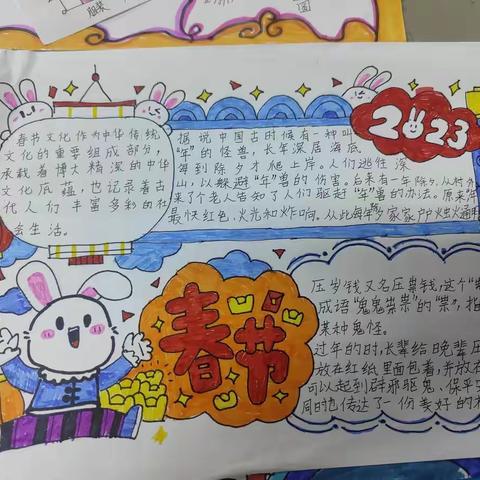 服装
图
春节文化作为中华传统
文化的重要组成部分,
承载着博大精深的中华
文化底蕴,也记录着古
代人们丰富多彩的社
会生活。
据说中国古时候有一种叫
"年"的怪兽,长年深居海底,
每到除夕才爬上岸。人们逃往深
山,以躲避"年"兽的伤害。后来有一年除夕,从村外
来了个老人告知了人们驱赶"年"兽的办法。原来"年"
最怕红色、火光和炸响。从此每年除夕家家户户烛火通
2023
春节
压岁钱又名压祟钱,这个"
成语"鬼鬼祟祟"的"祟",指
某种鬼怪。
过年的时,长辈给晚辈压
放在红纸里面包着,并放在
可以起到辟邪驱鬼、保平
同时也传达了一份美好的